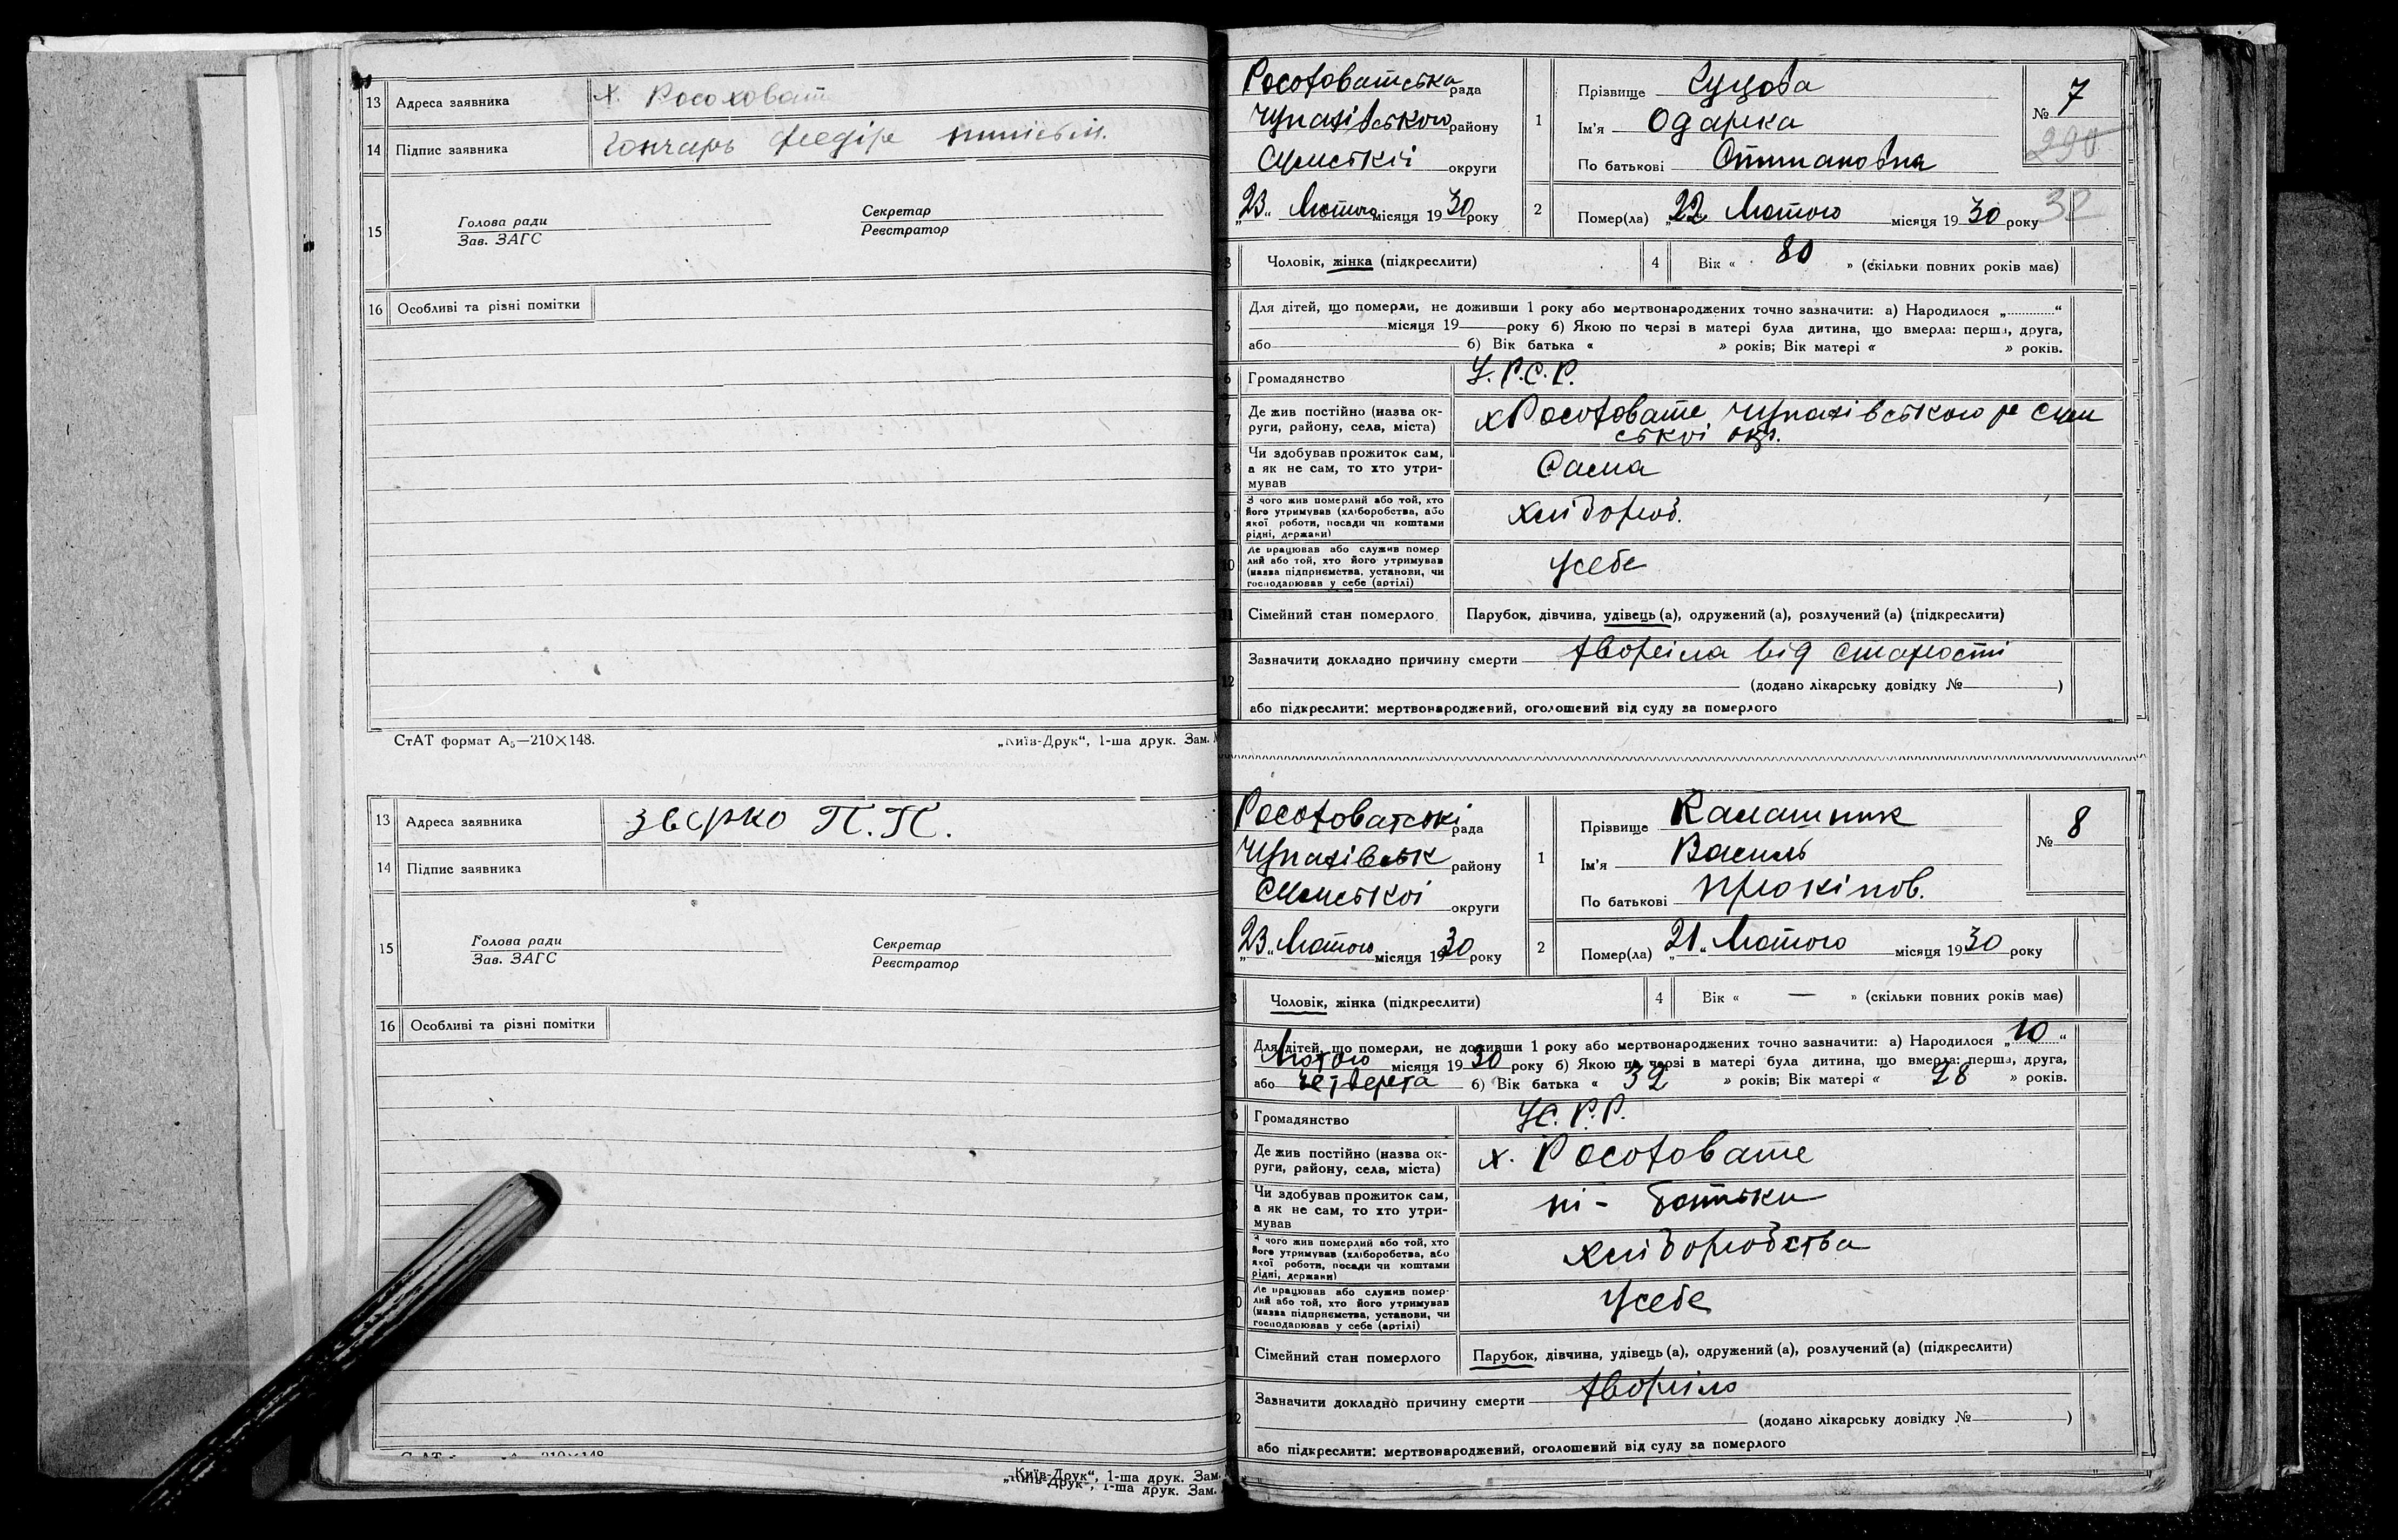 13 Адреса заявника х. Росоховат
14 Підпис заявника Гончарь Федір
15 Голова ради Секретар
Зав. ЗАГС Реєстратор
16 Особливі та різні помітки
СтАТ формат А₅—210×148. „Київ-Друк“, 1-ша друк. Зам.
13 Адреса заявника Звєрко П.П.
14 Підпис заявника
15 Голова ради Секретар
Зав. ЗАГС Реєстратор
16 Особливі та різні помітки
„Київ-Друк“, 1-ша друк. Зам.
„Київ-Друк“, 1-ша друк. Зам.
Росоховатська рада
Чупахівського району
Сумської округи
„23“ Лютого місяця 1930 року
1 Прізвище
Ім'я Одарка
По батькові
№ 7
290
32
2 Помер(ла) „22 Лютого місяця 1930 року
3 Чоловік, жінка (підкреслити) 4 Вік « 80 » (скільки повних років має)
5 Для дітей, що померли, не доживши 1 року або мертвонароджених точно зазначити: а) Народилося „............“
місяця 19 року б) Якою по черзі в матері була дитина, що вмерла: перша, друга,
або б) Вік батька « » років; Вік матері « » років.
6 Громадянство У.Р.С.Р.
7 Де жив постійно (назва округи, району, села, міста) х Росоховате Чупахівського р Сум
ської окр.
8 Чи здобував прожиток сам,
а як не сам, то хто утри-
мував Сама
9 З чого жив померлий або той, хто
його утримував (хліборобства, або
якої роботи, посади чи коштами
рідні, держави) хлібороб.
10 Де працював або служив помер
лий або той, хто його утримував
(назва підприємства, установи, чи
господарював у себе (артілі) усебе
11 Сімейний стан померлого Парубок, дівчина, удівець (а), одружений (а), розлучений (а) (підкреслити)
12 Зазначити докладно причину смерти хворіла від старости
(додано лікарську довідку № )
або підкреслити: мертвонароджений, оголошений від суду за померлого
Росоховатскі рада
Чупахівськ району
Сумської округи
„23“ Лютого місяця 1930 року
1 Прізвище Калашник
Ім'я Василь
По батькові Прокіпов.
№ 8
2 Помер(ла) „21“ Лютого місяця 1930 року
3 Чоловік, жінка (підкреслити) 4 Вік « — » (скільки повних років має)
5 Для дітей, що померли, не доживши 1 року або мертвонароджених точно зазначити: а) Народилося „10“
Лютого місяця 1930 року б) Якою по черзі в матері була дитина, що вмерла: перша, друга,
або четверта б) Вік батька « 32 » років; Вік матері « 28 » років.
6 Громадянство УС.Р.Р.
7 Де жив постійно (назва ок-
руги, району, села, міста) х. Росоховате
8 Чи здобував прожиток сам,
а як не сам, то хто утри-
мував ні - батьки
9 З чого жив померлий або той, хто
його утримував (хліборобства, або
якої роботи, посади чи коштами
рідні, держави) хліборобства
10 Де працював або служив помер-
лий або той, хто його утримував
(назва підприємства, установи, чи
господарював у себе (артілі) усебе
11 Сімейний стан померлого Парубок, дівчина, удівець (а), одружений (а), розлучений (а) (підкреслити)
12 Зазначити докладно причину смерти хворіло
(додано лікарську довідку № )
або підкреслити: мертвонароджений, оголошений від суду за померлого